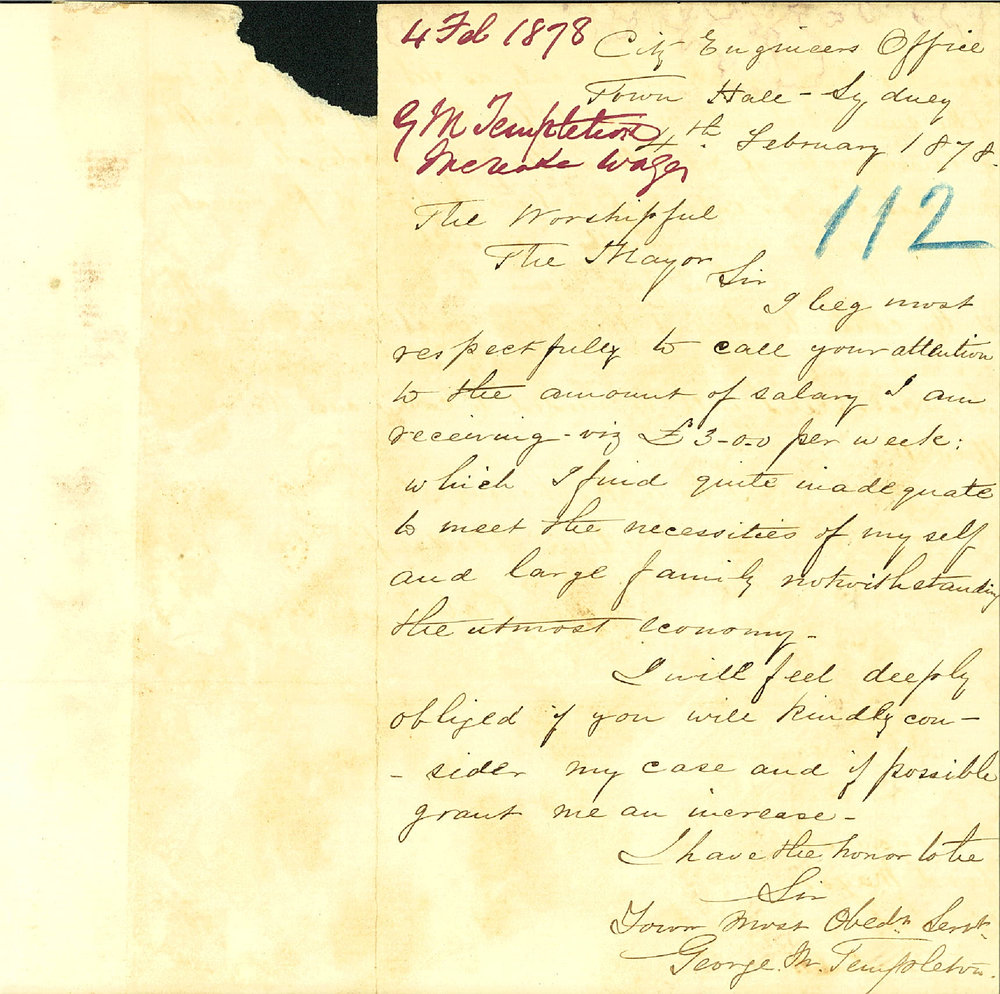 4 Feb 1878
City Engineers Office
Town Hall - Sydney
G M Templeton
4th February 1878.
Increase Wages
112
The Worshipful
The Mayor
Sir
I beg most
respectfully to call your attention
to the amount of salary I am
receiving - viz £3-0-0 per week:
which I find quite inadequate
to meet the necessities of my self
and large family notwithstanding
the utmost economy -
I will feel deeply
obliged if you will kindly con-
- sider my case and if possible
grant me an increase -
I have the honor to be
Sir
Your Most Obedt Servt
George. M. Templeton.